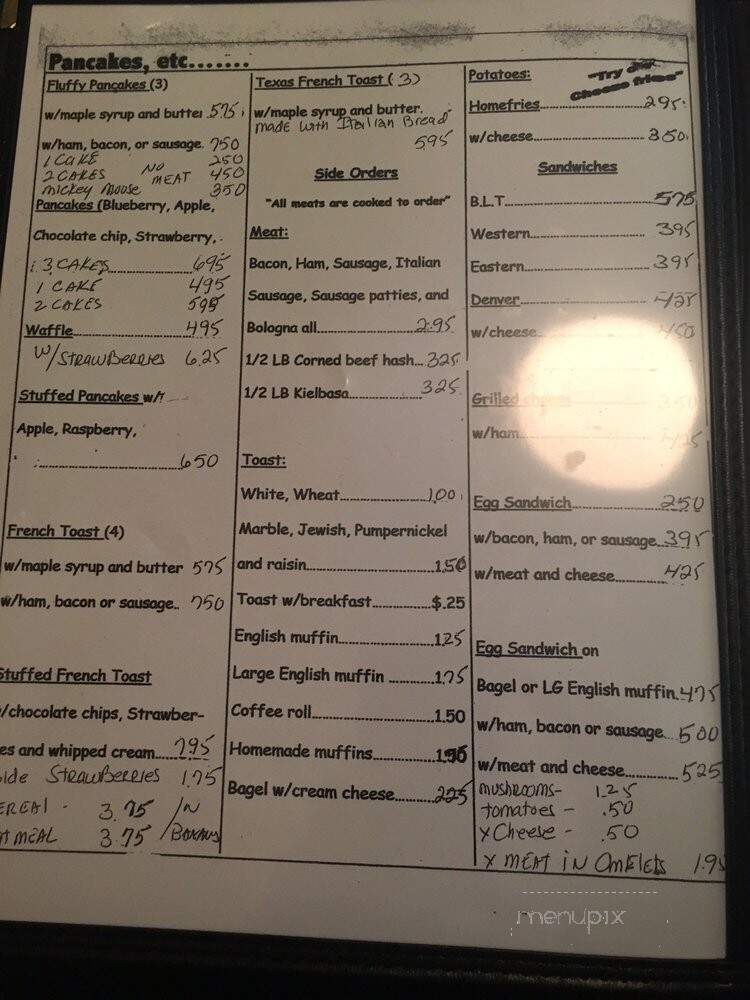 Pancakes, etc.......
Fluffy Pancakes (3)
w/maple syrup and butter 575
w/ham, bacon, or sausage. 750
1 CAKE 250
2 CAKES NO MEAT 450
mickey mouse 350
Pancakes (Blueberry, Apple,
Chocolate chip, Strawberry,
3 CAKES 695
1 CAKE 495
2 CAKES 595
Waffle 495
W/STRAWBERRIES 6.25
Stuffed Pancakes w/
Apple, Raspberry,
650
French Toast (4)
w/maple syrup and butter 575
w/ham, bacon or sausage.. 750
Stuffed French Toast
w/chocolate chips, Strawber-
es and whipped cream 795
ide STRAWBERRIES 1.75
EREAL - 3.75 IN
MEAL 3.75
Texas French Toast (3)
w/maple syrup and butter.
made with Italian Bread
595
Side Orders
"All meats are cooked to order"
Meat:
Bacon, Ham, Sausage, Italian
Sausage, Sausage patties, and
Bologna all 2.95
1/2 LB Corned beef hash... 325
1/2 LB Kielbasa 325
Toast:
White, Wheat 1.00
Marble, Jewish, Pumpernickel
and raisin 1.50
Toast w/breakfast $.25
English muffin 1.25
Large English muffin 1.75
Coffee roll 1.50
Homemade muffins
Bagel w/cream cheese 225
Potatoes:
"Try our
Cheese fries"
Homefries 295
w/cheese 350
Sandwiches
B.L.T. 575
Western 395
Eastern 395
Denver 425
w/cheese 450
Grilled cheese
w/ham 425
Egg Sandwich 250
w/bacon, ham, or sausage 395
w/meat and cheese 425
Egg Sandwich on
Bagel or LG English muffin. 475
w/ham, bacon or sausage... 500
w/meat and cheese 525
mushrooms- 1.25
tomatoes - .50
x Cheese - .50
x MEAT IN OMELETS 1.95
menupix